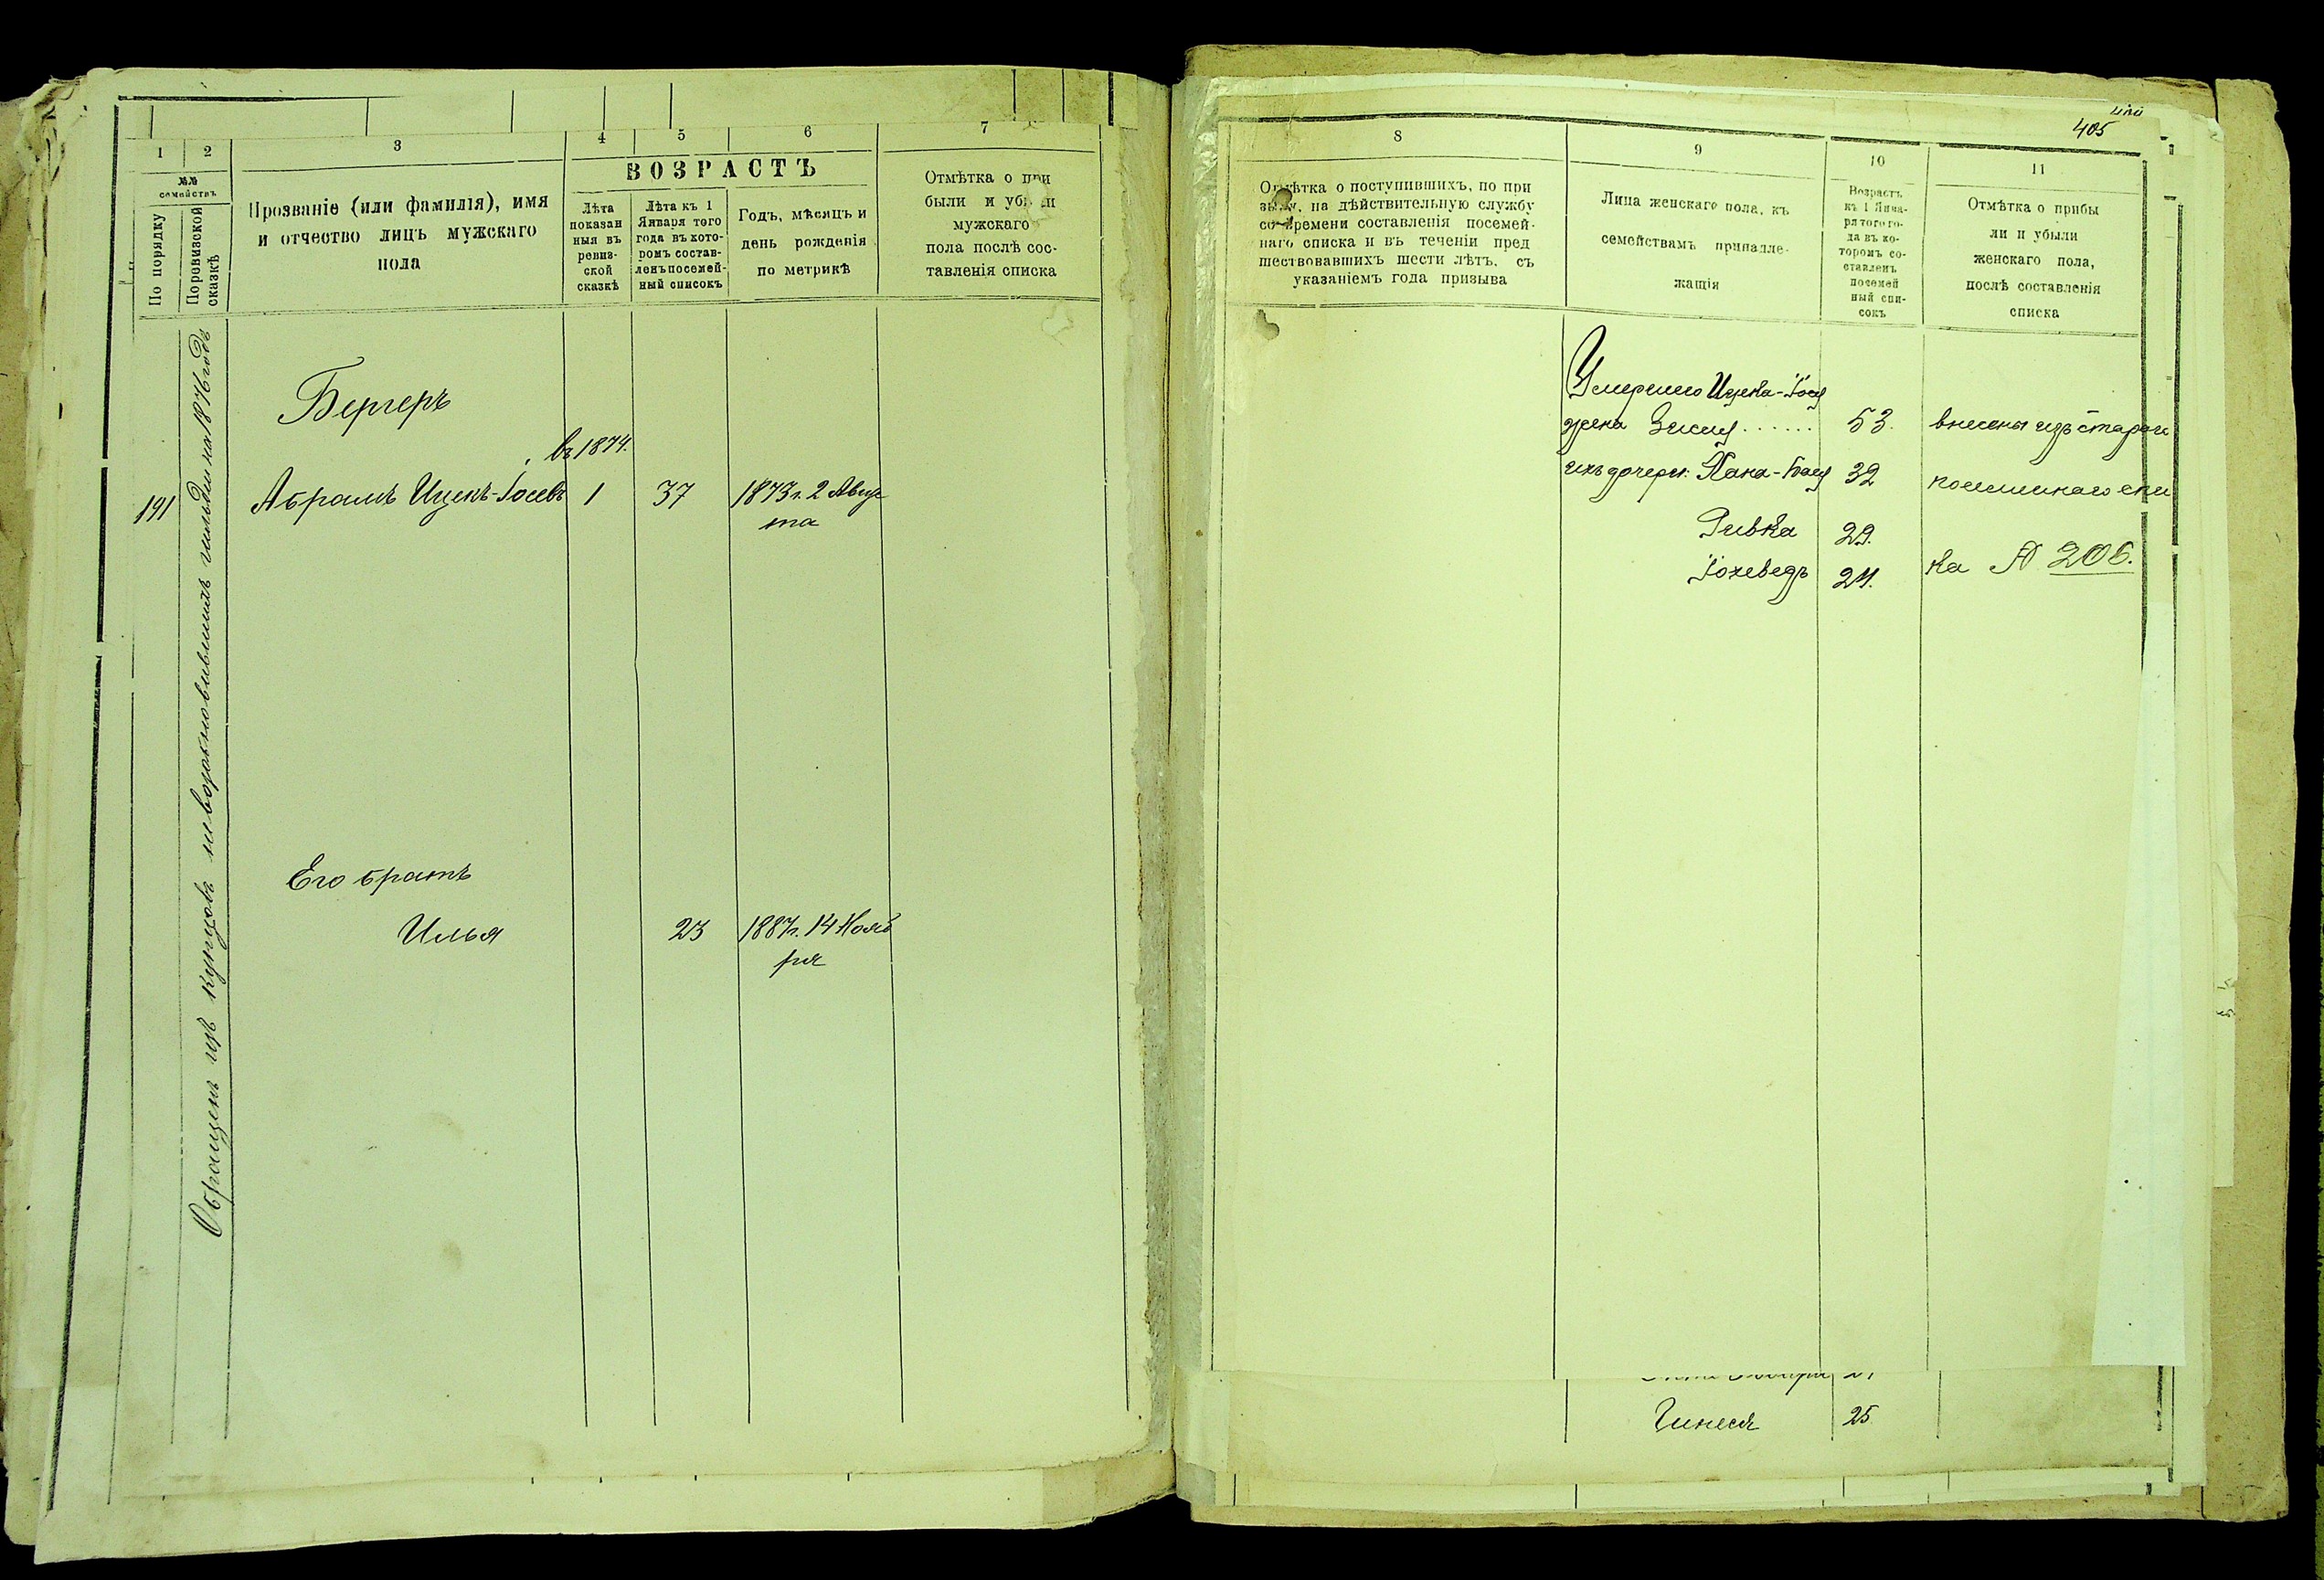 1
2
3
4
5
6
7
№№
семействъ
По порядку
По ревизской
сказкѣ
Прозваніе (или фамилія), имя
и отчество лицъ мужскаго
пола
ВОЗРАСТЪ
Лѣта
показан
ныя въ
ревиз-
ской
сказкѣ
Лѣта къ 1
Января того
года въ кото-
ромъ состав-
ленъ посемей-
ный списокъ
Годъ, мѣсяцъ и
день рожденія
по метрикѣ
Отмѣтка о при
были и убыли
мужскаго
пола послѣ сос-
тавленія списка
Обращенъ изъ купцовъ невозобновившихъ гильдіи на 1876 годъ
Бергеръ
въ 1874.
191
Абрамъ Ицекъ-Іосевъ
1
37
1873 г. 2 Авгус
та
Его братъ
Илья
23
1887 г. 14 Нояб
ря
405
8
9
10
11
Отмѣтка о поступившихъ, по при
зыву, на дѣйствительную службу
со времени составленія посемей-
наго списка и въ теченіи пред
шествовавшихъ шести лѣтъ, съ
указаніемъ года призыва
Лица женскаго пола, къ
семействамъ принадле-
жащія
Возрастъ
къ 1 Янва-
ря того го-
да въ ко-
торомъ со-
ставленъ
посемей
ный спи-
сокъ
Отмѣтка о прибы
ли и убыли
женскаго пола,
послѣ составленія
списка
Умершего Ицека-Іося
жена Зися
53.
внесены изъ стараго
ихъ дочери: Хана-Бася
32
посемейнаго спи
Ривка
29.
Іохеведъ
24.
ка № 206.
Гинеся
25